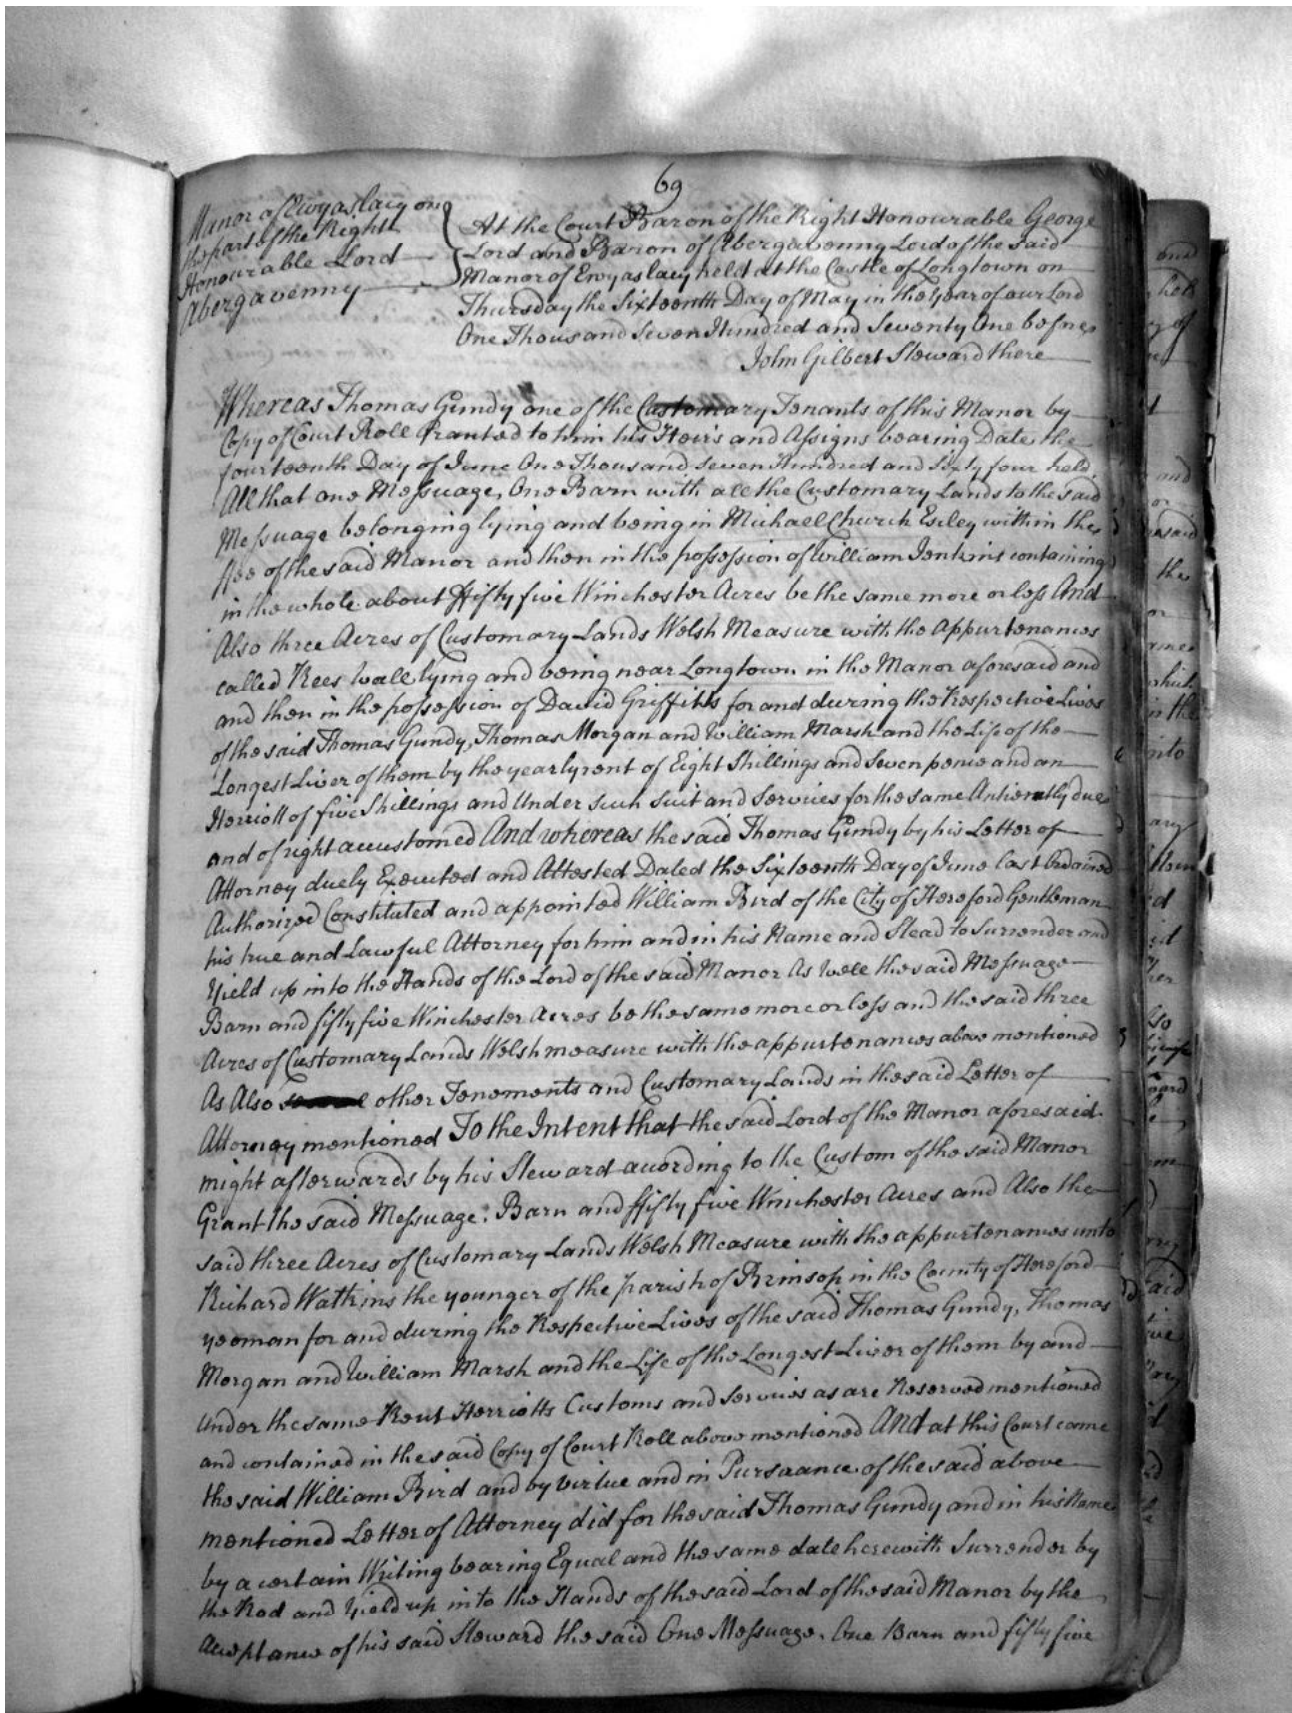 69
Manor of Ewyaslacy on
the part of the Right
Honourable Lord
Abergavenny
At the Court Baron of the Right Honourable George
Lord and Baron of Abergavenny Lord of the said
Manor of Ewyaslacy held at the Castle of Longtown on
Thursday the Sixteenth Day of May in the Year of our Lord
One Thousand Seven Hundred and Seventy One before
John Gilbert Steward there
Whereas Thomas Gundy one of the Customary Tenants of this Manor by
Copy of Court Roll Granted to him his Heirs and Assigns bearing Date the
fourteenth Day of June One Thousand Seven Hundred and Sixty four held
All that one Messuage, One Barn with all the Customary Lands to the said
Messuage belonging lying and being in Michael Church Eskley within the
ffee of the said Manor and then in the possession of William Jenkins containing
in the whole about ffifty five Winchester Acres be the same more or less And
Also three Acres of Customary Lands Welsh Measure with the Appurtenances
called Rees Wall lying and being near Longtown in the Manor aforesaid and
and then in the possession of David Griffitts for and during the Respective Lives
of the said Thomas Gundy, Thomas Morgan and William Marsh and the Life of the
Longest Liver of them by the yearly rent of Eight Shillings and Seven pence and an
Herriott of five Shillings and Under such Suit and Services for the same Antiently due
and of right accustomed And whereas the said Thomas Gundy by his Letter of
Attorney duely Executed and Attested Dated the Sixteenth Day of June last Ordained
Authorized Constituted and appointed William Bird of the City of Hereford Gentleman
his true and Lawful Attorney for him and in his Name and Stead to Surrender and
Yield up into the Hands of the Lord of the said Manor As well the said Messuage
Barn and fifty five Winchester Acres be the same more or less and the said three
Acres of Customary Lands Welsh measure with the appurtenances above mentioned
As Also other Tenements and Customary Lands in the said Letter of
Attorney mentioned To the Intent that the said Lord of the Manor aforesaid
might afterwards by his Steward acording to the Custom of the said Manor
Grant the said Messuage. Barn and ffifty five Winchester Acres and Also the
said three Acres of Customary Lands Welsh Measure with the appurtenances unto
Richard Watkins the younger of the parish of Brinsop in the County of Hereford
yeoman for and during the Respective Lives of the said Thomas Gundy, Thomas
Morgan and William Marsh and the Life of the Longest Liver of them by and
Under the same Rent Herriotts Customs and Services as are Reserved mentioned
and contained in the said Copy of Court Roll above mentioned And at this Court came
the said William Bird and by Virtue and in Pursuance of the said above
mentioned Letter of Attorney did for the said Thomas Gundy and in his Name
by a certain Writing bearing Equal and the same date herewith Surrender by
the Rod and Yield up into the Hands of the said Lord of the said Manor by the
acceptance of his said Steward the said One Messuage. One Barn and fifty five